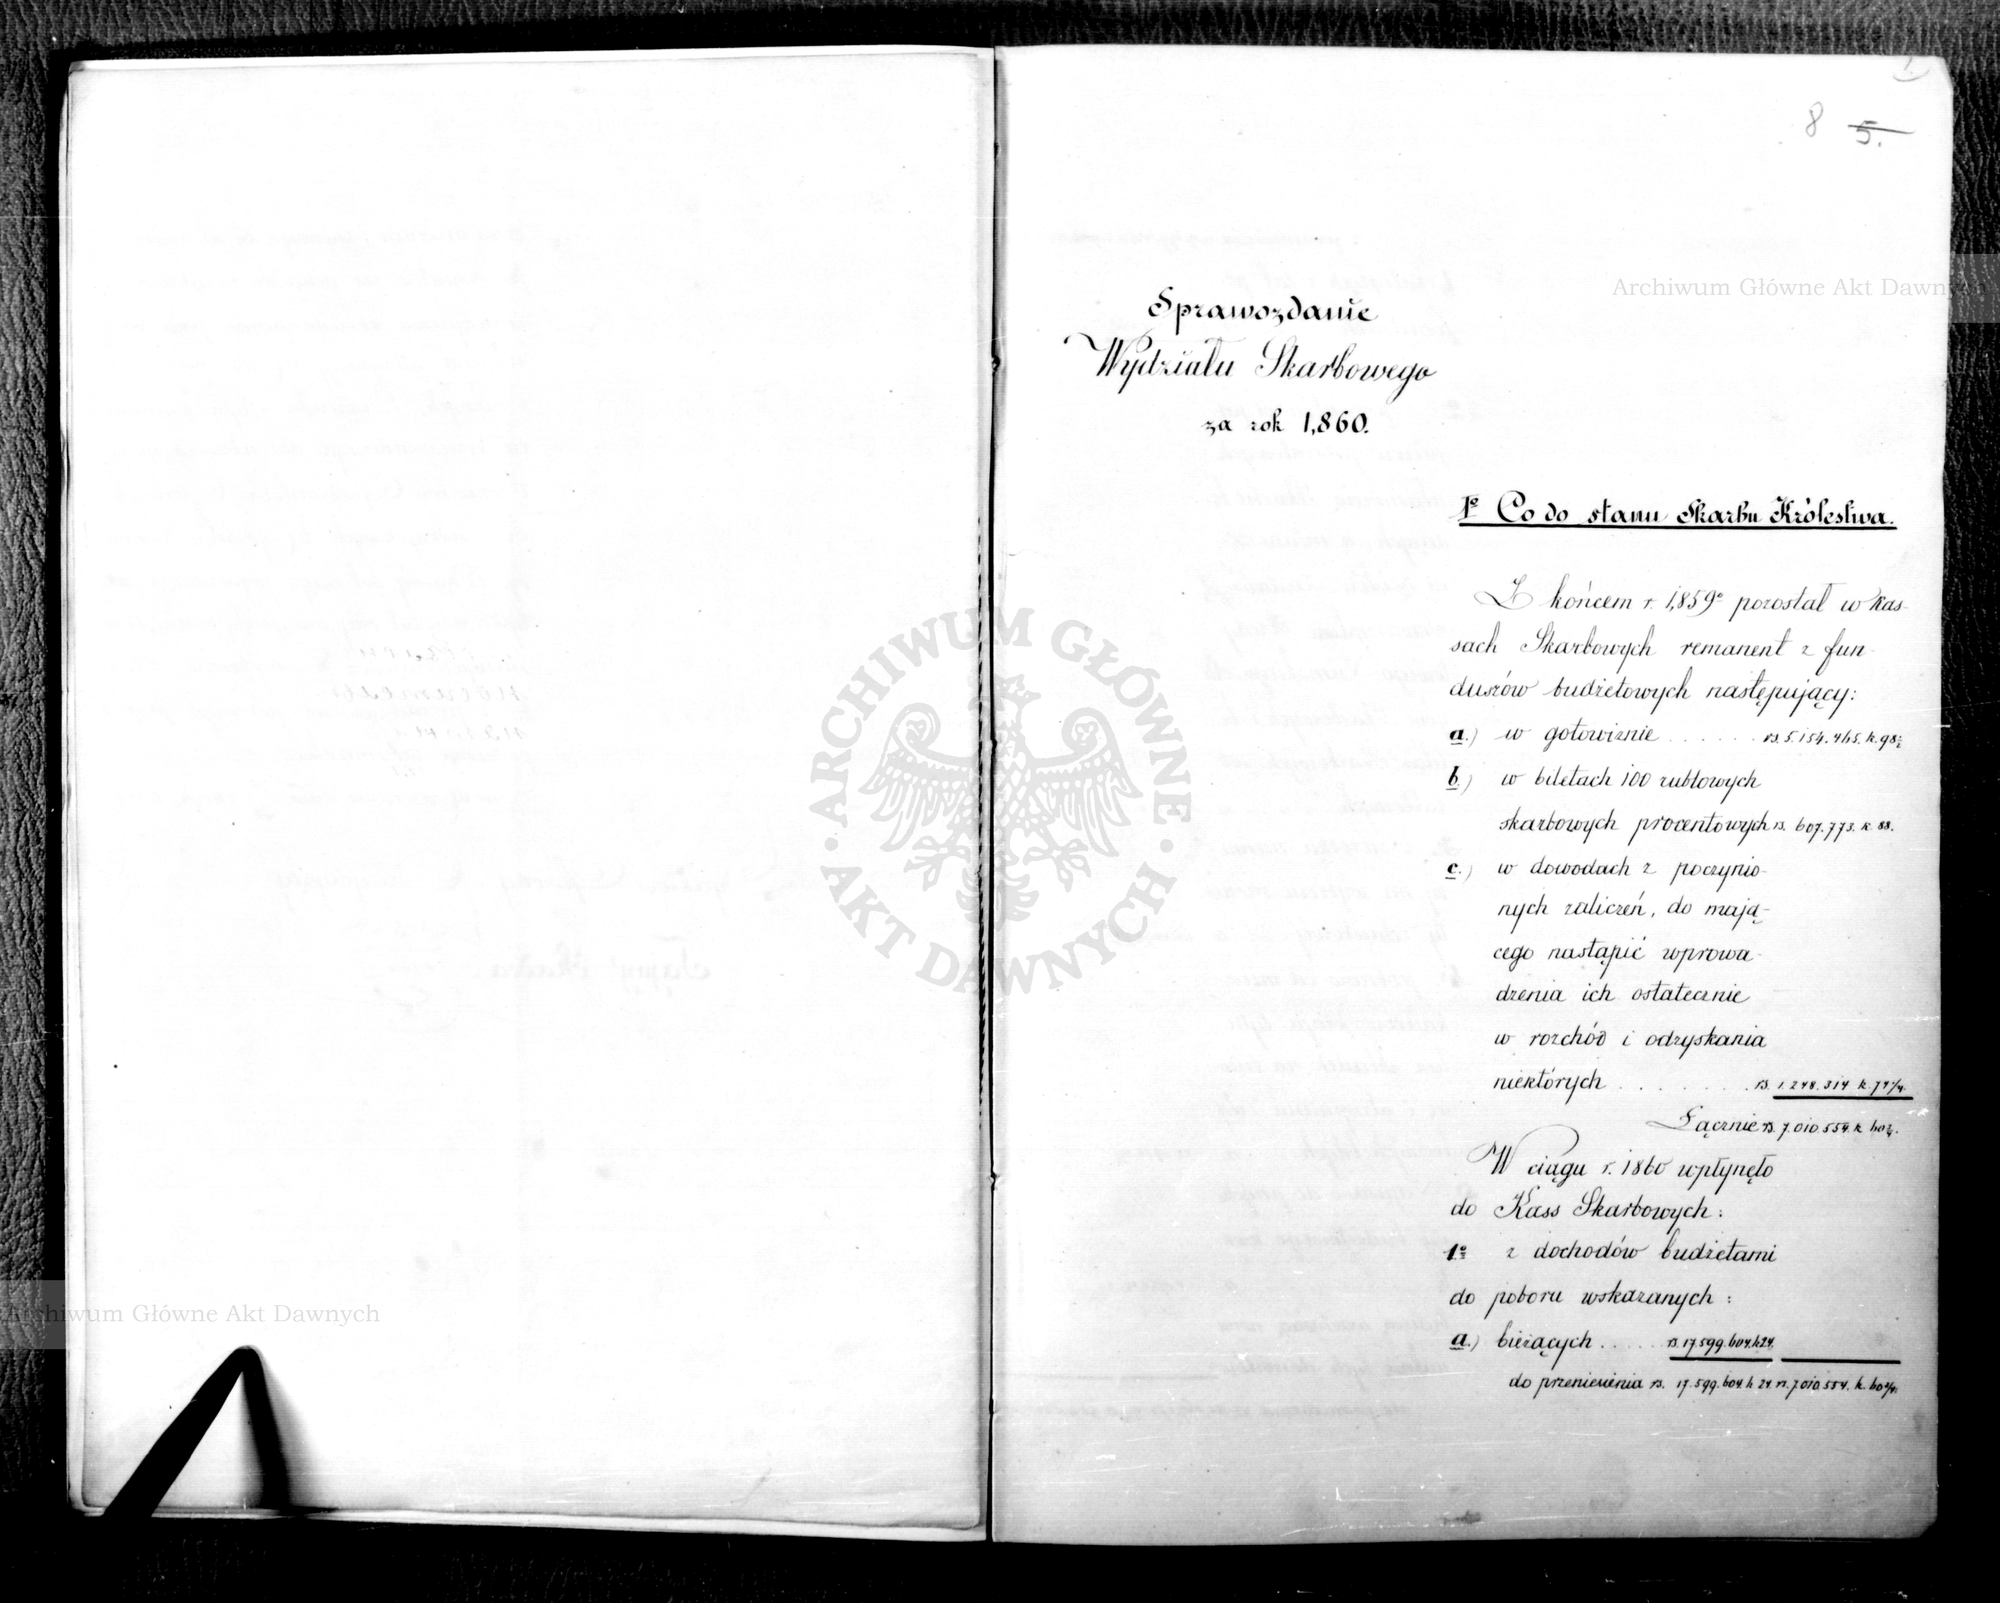 8 5.
Archiwum Główne Akt Dawnych
Sprawozdanie
Wydziału Skarbowego
za rok 1,860.
1º Co do stanu Skarbu Królestwa.
Z końcem r. 1,859º pozostał w kas-
sach Skarbowych remanent z fun-
duszów budżetowych następujący:
a.) w gotowiźnie . . . . . . rs. 5.154.465. k. 98½
b.) w biletach 100 rublowych
skarbowych procentowych rs. 607.773. k. 88.
c.) w dowodach z poczynio-
nych zaliczeń, do mają-
cego nastąpić wprowa-
dzenia ich ostatecznie
w rozchód i odzyskania
niektórych . . . . . . . rs. 1.248.314 k.
Łącznie rs. 7.010.554. k.
W ciągu r. 1860 wpłynęło
do Kass Skarbowych:
1º z dochodów budżetami
do poboru wskazanych:
a.) bieżących . . . . . rs. 17.599.604. k 24.
do przeniesienia rs. 17.599.604 k 24 rs. 7.010.554. k.
ARCHIWUM GŁÓWNE
AKT DAWNYCH
Archiwum Główne Akt Dawnych